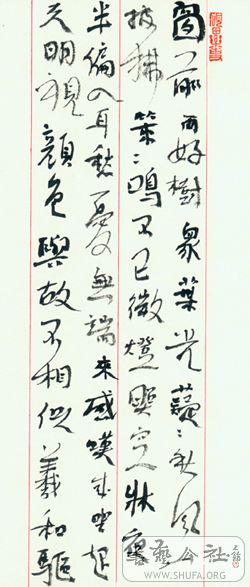 窗前兩好樹眾葉光薿々秋風
披拂策々鳴不已微燈照空床夜
半偏入耳愁憂無端來感嘆成坐起
天明視顏色與故不相似羲和驅
藝公社
WWW.SHUFA.ORG